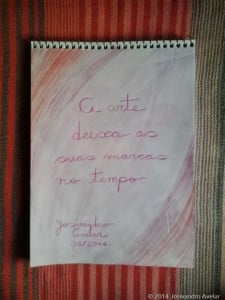 A arte
deixa as
suas marcas
no tempo
Jossandro
Avelar
02/2014
© 2014 Jossandro Avelar